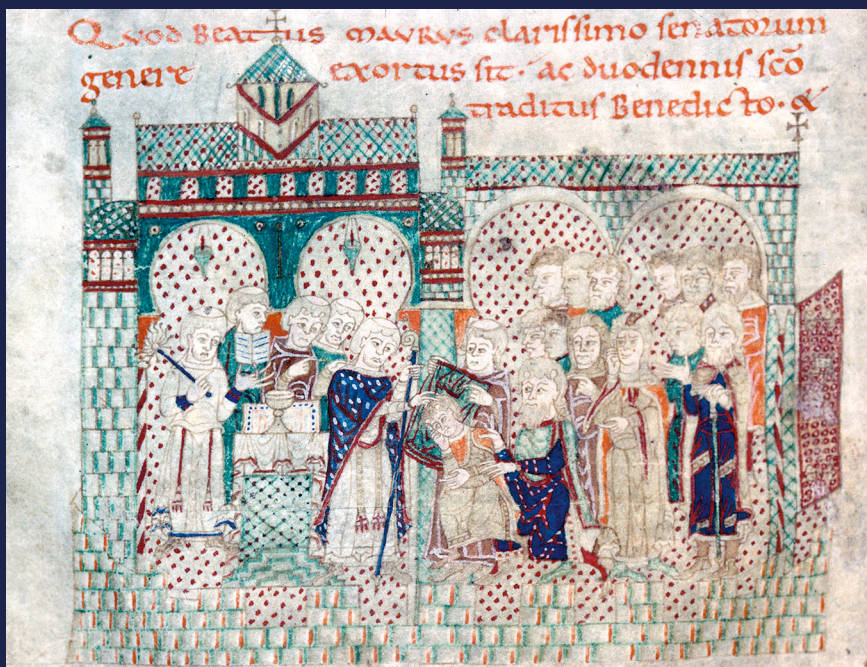 Quod Beatus mavrvs clarissimo senatorum
genere exortus sit· ac duodennis sc̄o
traditus Benedicto· &